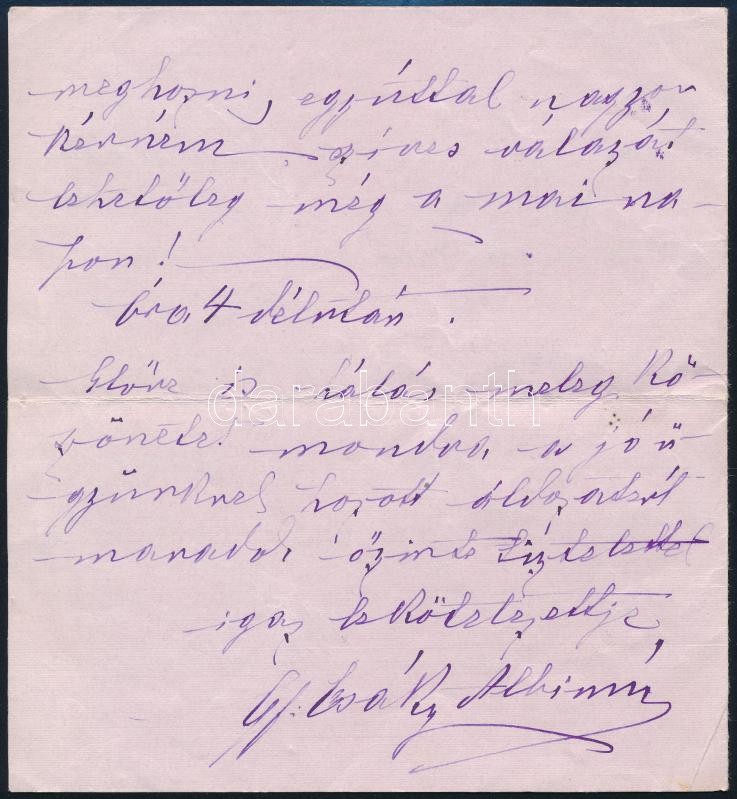 meghozni, egyúttal nagyon
kérném szives válaszát
lehetőleg még a mai na-
pon!
Óra 4 délután.
Előre is hálás meleg kö-
szönetet mondva a jó ü-
gyünknek hozott áldozatért
maradok őszinte tisztelettel
igaz lekötelezettje
Gf. Csáky Albinné
darabanth